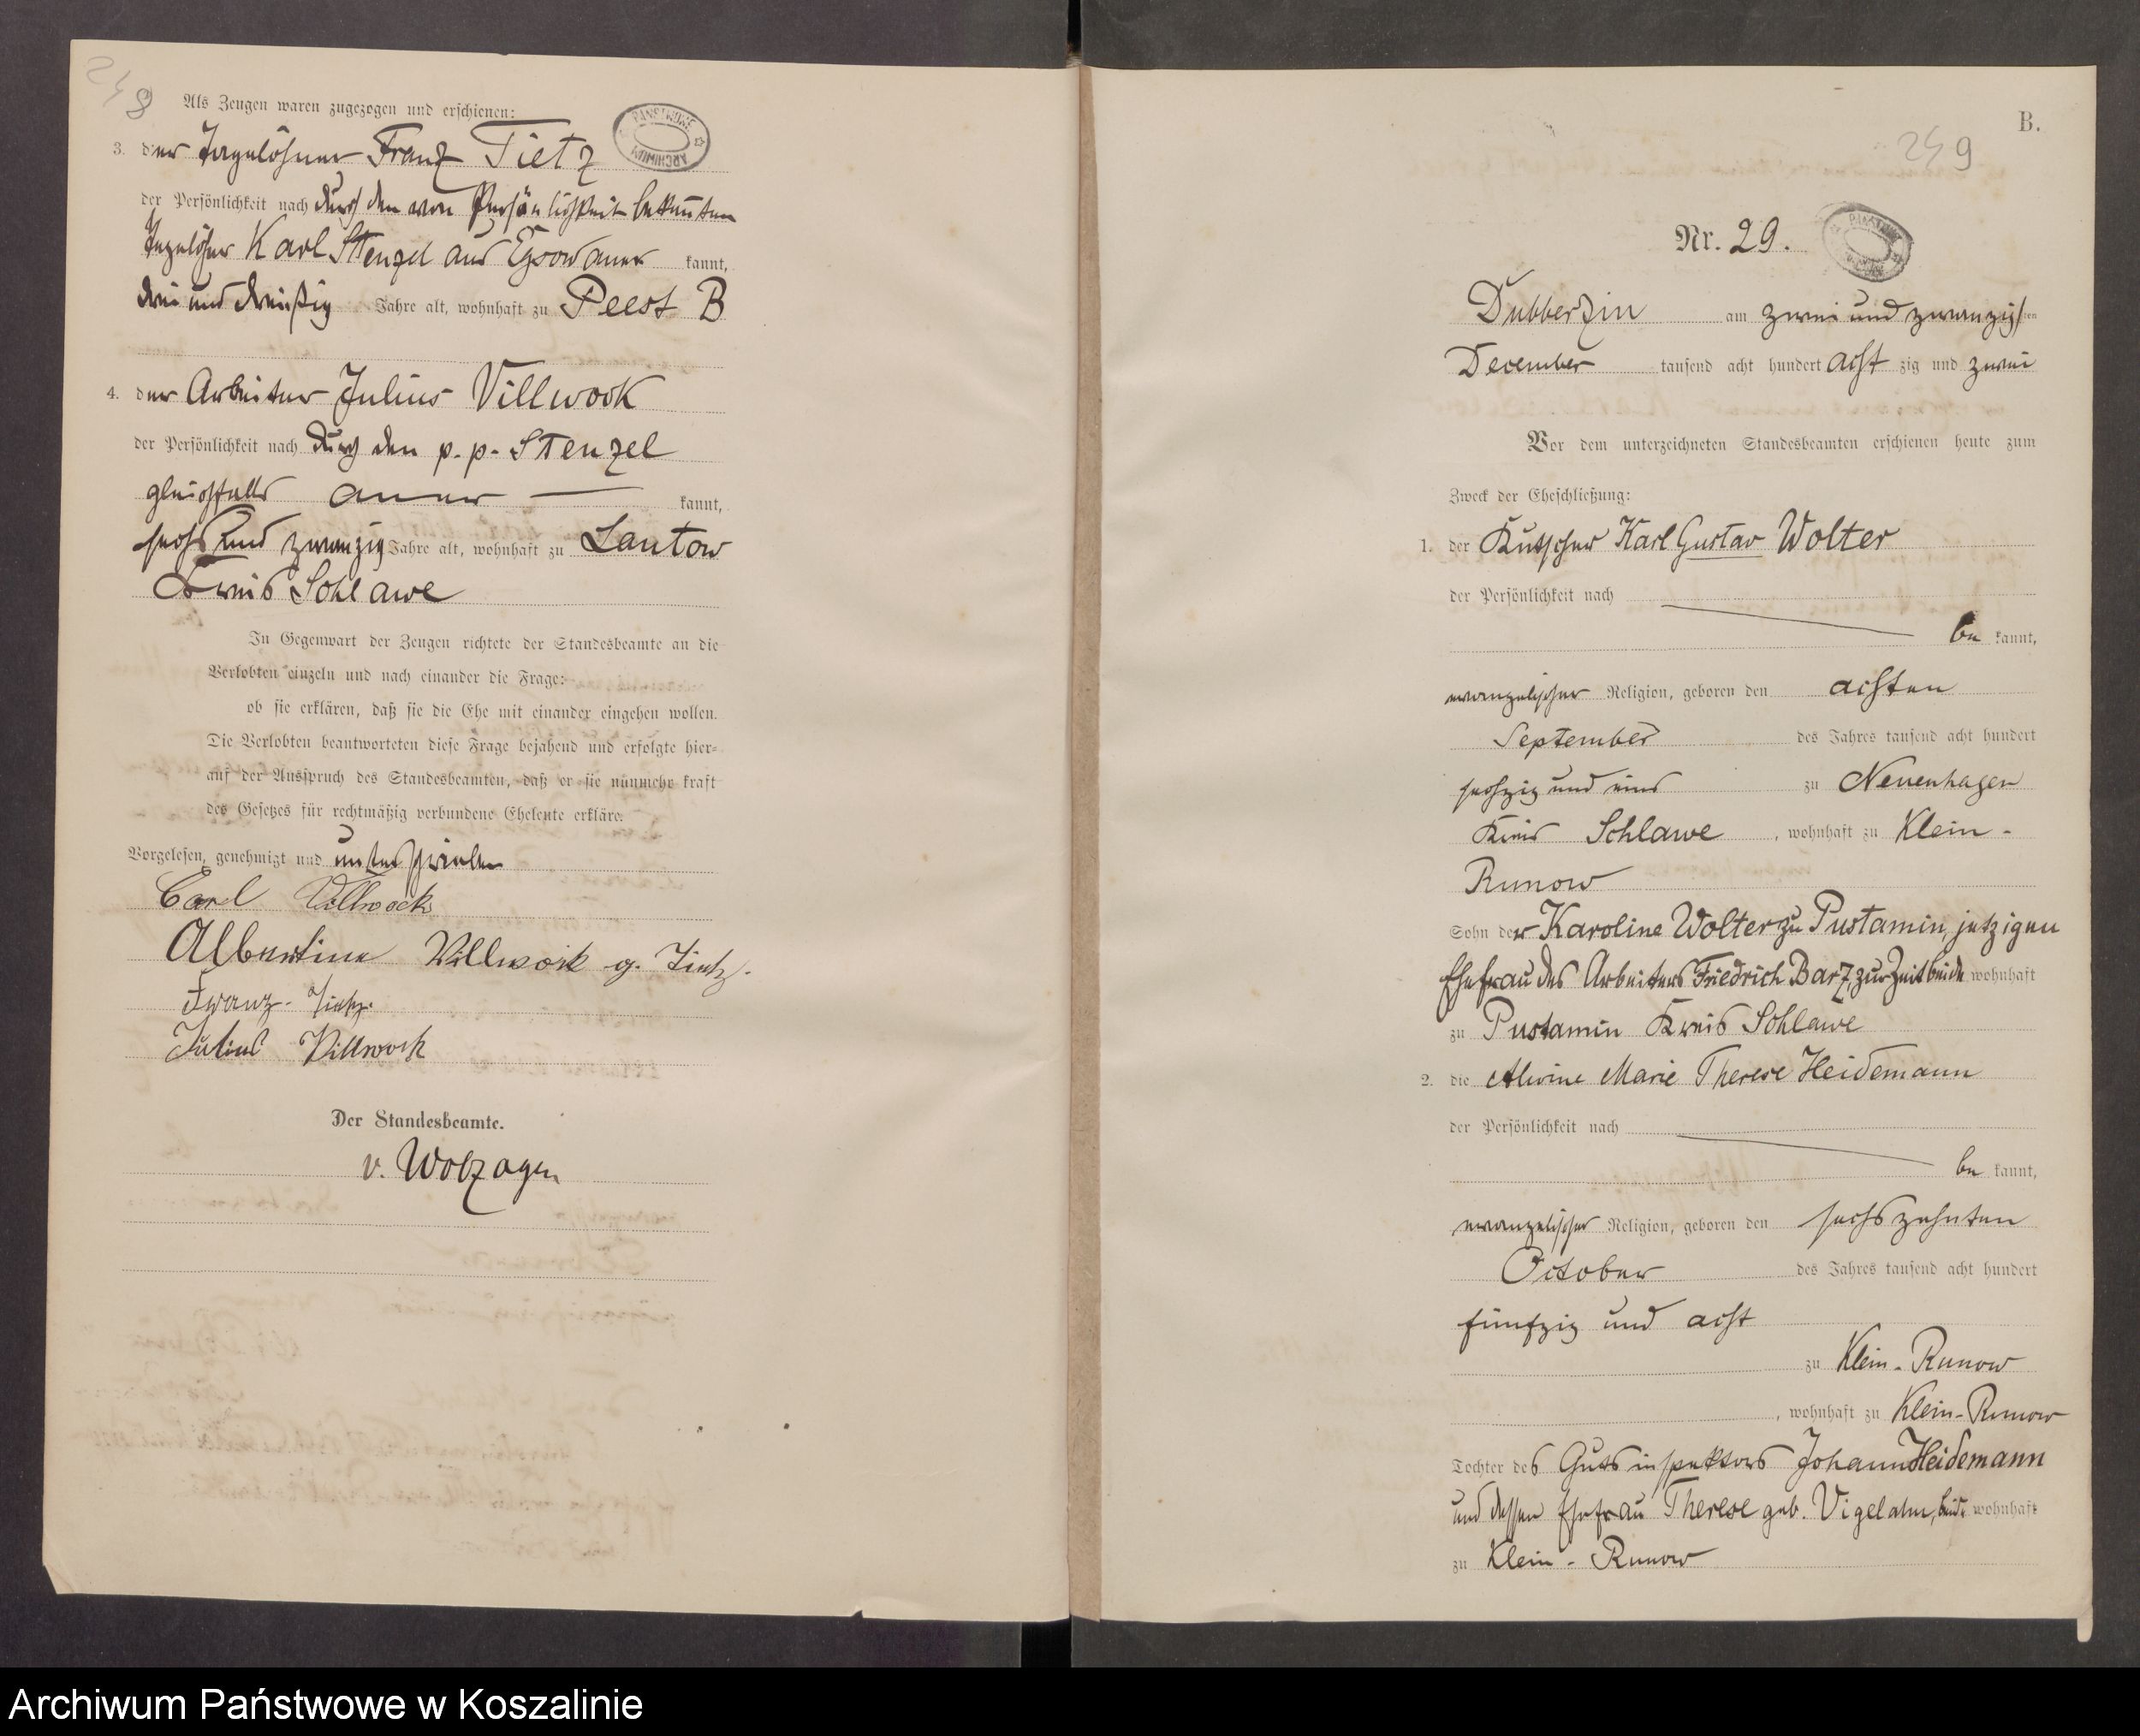 248
Als Zeugen waren zugezogen und erschienen:
3. der Tagelöhner Franz Tietz
der Persönlichkeit nach durch den von Persönlichkeit bekannten
Tagelöhner Karl Stenzel aus Egsow aner kannt,
drei und dreißig Jahre alt, wohnhaft zu Peest B
4. der Arbeiter Julius Villwock
der Persönlichkeit nach durch den p. p. Stenzel
gleichfalls aner kannt,
sechs und zwanzig Jahre alt, wohnhaft zu Lantow
Kreis Schlawe
In Gegenwart der Zeugen richtete der Standesbeamte an die
Verlobten einzeln und nach einander die Frage:
ob sie erklären, daß sie die Ehe mit einander eingehen wollen.
Die Verlobten beantworteten diese Frage bejahend und erfolgte hier-
auf der Ausspruch des Standesbeamten, daß er sie nunmehr kraft
des Gesetzes für rechtmäßig verbundene Eheleute erkläre.
Vorgelesen, genehmigt und unterschrieben
Carl Villwock
Albertine Villwock g. Tietz.
Franz Tietz.
Julius Villwock
Der Standesbeamte.
v. Wolzogen
B.
249
Nr. 29.
Dubberzin am zwei und zwanzigsten
December tausend acht hundert acht zig und zwei
Vor dem unterzeichneten Standesbeamten erschienen heute zum
Zweck der Eheschließung:
1. der Kutscher Karl Gustav Wolter
der Persönlichkeit nach
be kannt,
evangelischer Religion, geboren den achten
September des Jahres tausend acht hundert
sechzig und eins zu Neuenhagen
Kreis Schlawe, wohnhaft zu Klein-
Runow
Sohn der Karoline Wolter zu Pustamin, jetzigen
Ehefrau des Arbeiters Friedrich Barz, zur Zeit beide wohnhaft
zu Pustamin Kreis Schlawe
2. die Alwine Marie Therese Heidemann
der Persönlichkeit nach
be kannt,
evangelischer Religion, geboren den sechszehnten
October des Jahres tausend acht hundert
fünfzig und acht
zu Klein-Runow
, wohnhaft zu Klein-Runow
Tochter des Gutsinspektors Johann Heidemann
und dessen Ehefrau Therese geb. Vigelahn, beide wohnhaft
zu Klein-Runow
Archiwum Państwowe w Koszalinie